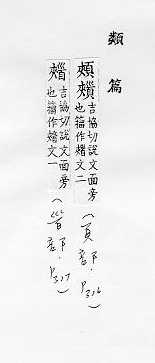 類 篇
頰䫡吉協切說文面旁也籀作䫡文二
(頁部.P316)
䭿吉協切說文面旁也籀作䭿文一
(𦣻部.P317)